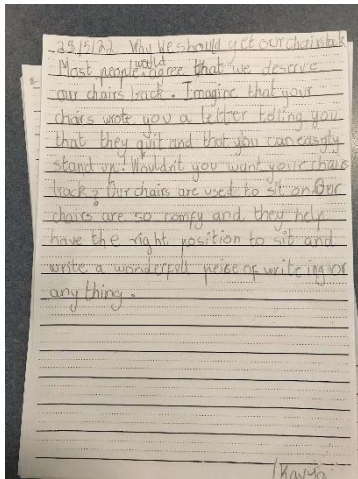 25/5/22 Why we should get our chairs back
Most people would agree that we deserve
our chairs back. Imagine that your
chairs wrote you a letter telling you
that they quit and that you can easily
stand up! Wouldn't you want your chairs
back? Our chairs are used to sit on. Our
chairs are so comfy and they help
have the right position to sit and
write a wonderfull peice of writeing or
any thing.